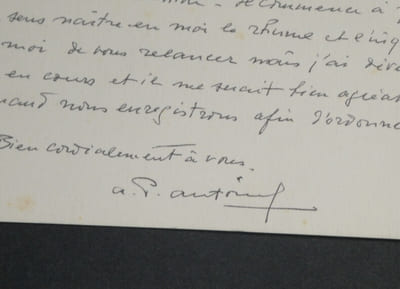 Recommence à
sens naître en moi le rhume et l'inq
moi de vous relancer mais j'ai
en cours et il me serait bien agréa
uand nous enregistrons afin d'ordonne
Bien cordialement à vous.
a. P. antoine